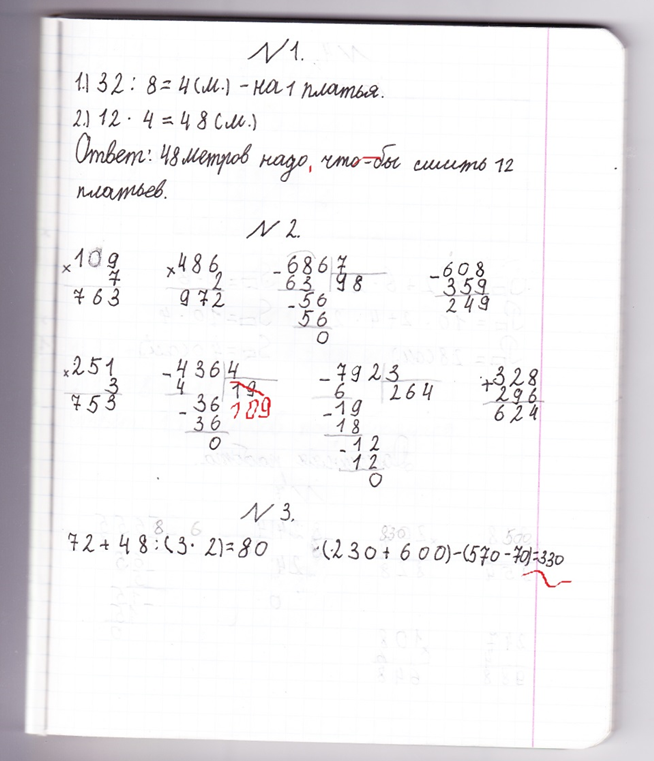 N 1.
1.) 32 : 8 = 4 (м.) - на 1 платья.
2.) 12 · 4 = 48 (м.)
Ответ: 48 метров надо, что-бы сшить 12
платьев.
N 2.
×109
7
763
×486
2
972
-686 7
63 98
-56
56
0
-608
359
249
×251
3
753
-436 4
4 19
109
-36
36
0
-792 3
6 264
-19
18
-12
12
0
+328
296
624
N 3.
8
72 + 48 : (3 · 2) = 80
(230 + 600) - (570 - 70) = 330